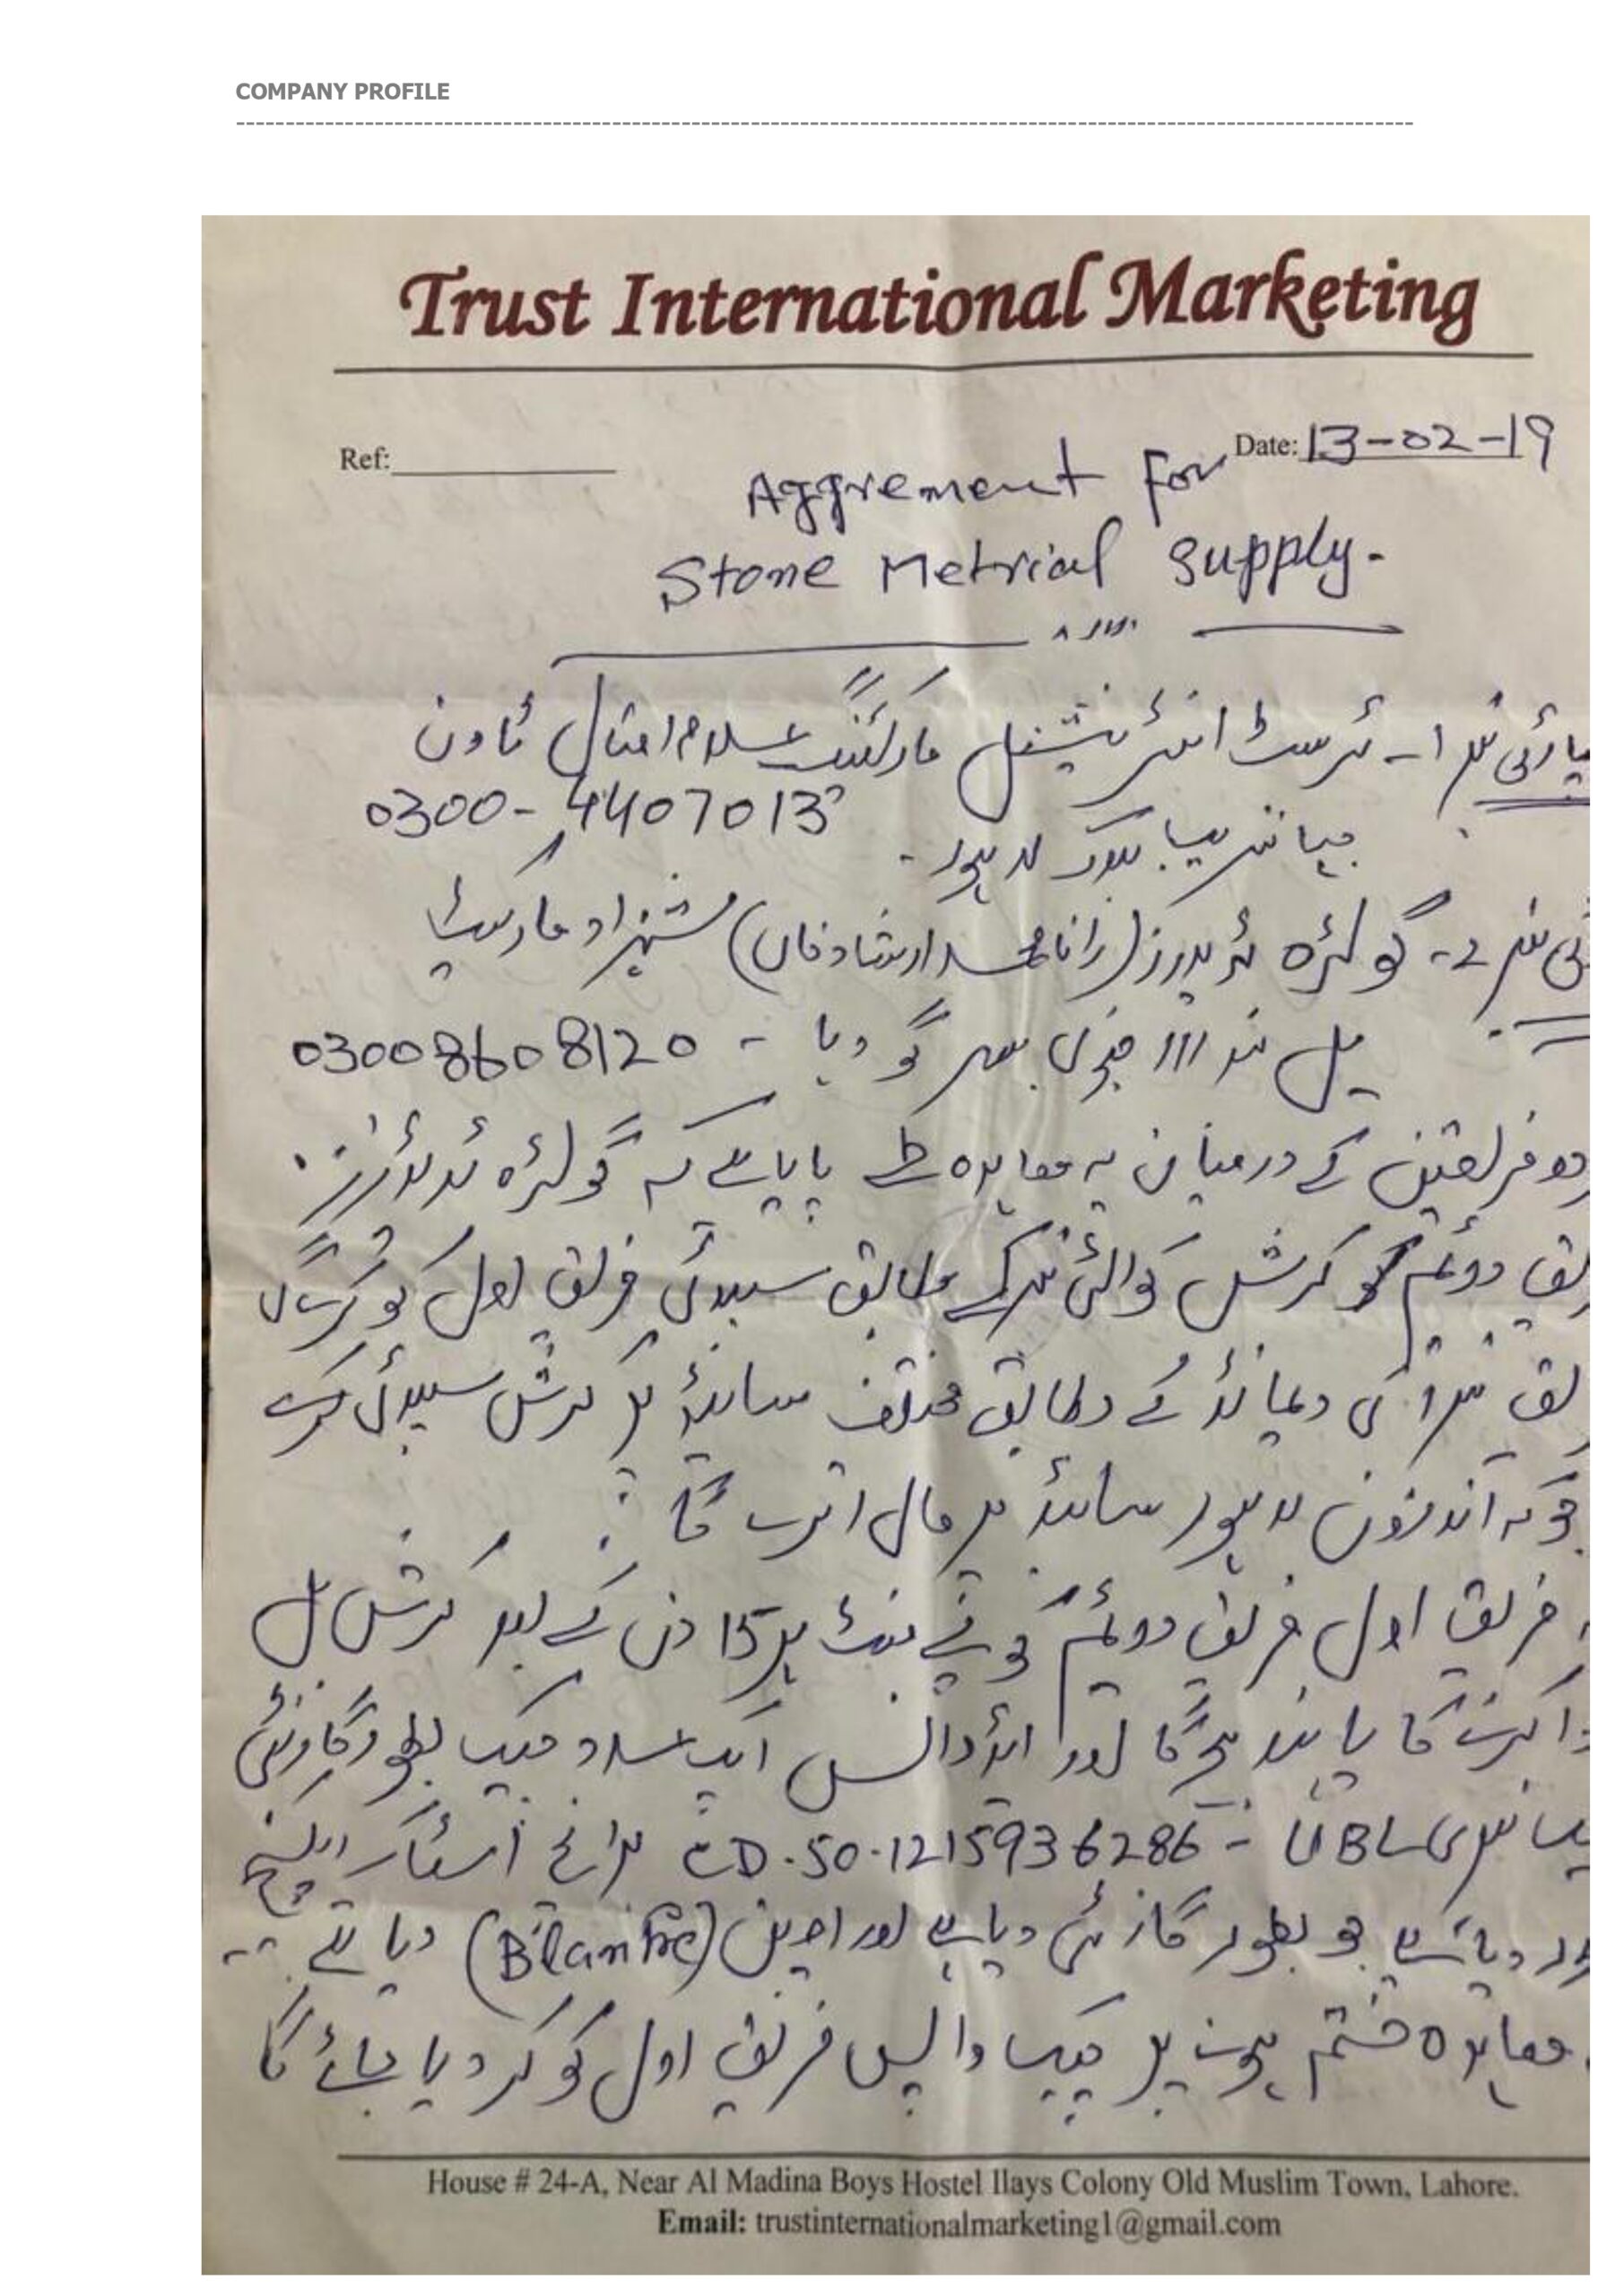 COMPANY PROFILE
Trust International Marketing
Ref:
Date: 13-02-19
Aggrement For
Stone Metrial Supply.
پارٹی نمبر 1 - ٹرسٹ انٹرنیشنل مارکٹنگ علامہ اقبال ٹاون
0300-4407013
جہانزیب بلاک لاہور -
نمبر 2 - گولڑہ ٹریڈرز (رانا محمد ارشاد خاں) شہزاد مارکیٹ
پل نمبر 111 جنوبی سرگودہا - 03008608120
دو فریقین کے درمیان یہ معاہدہ طے پایا ہے کہ گولڑہ ٹریڈرز
دوئم کرش کوالٹی کے مطابق سپلائی فریق اول کو کرے گا
کی ڈیمانڈ کے مطابق مختلف سائیڈ پر کرش سپلائی کرے
جو کہ اندرون لاہور سائیڈ پر مال اترے گا
فریق اول فریق دوئم کو پے منٹ پر 15 دن کے بعد کرش بل
ادا کرنے کا پابند ہوگا اور ایڈوانس ایک عدد چیک بطور گارنٹی
UBL - CD.50.1215936286 برائے
دیا ہے جو بطور گارنٹی دیا ہے اور (Blanke) دیا ہے
معاہدہ ختم ہونے پر چیک واپس فریق اول کو کر دیا جائے گا
House # 24-A, Near Al Madina Boys Hostel Ilays Colony Old Muslim Town, Lahore.
Email: trustinternationalmarketing1@gmail.com